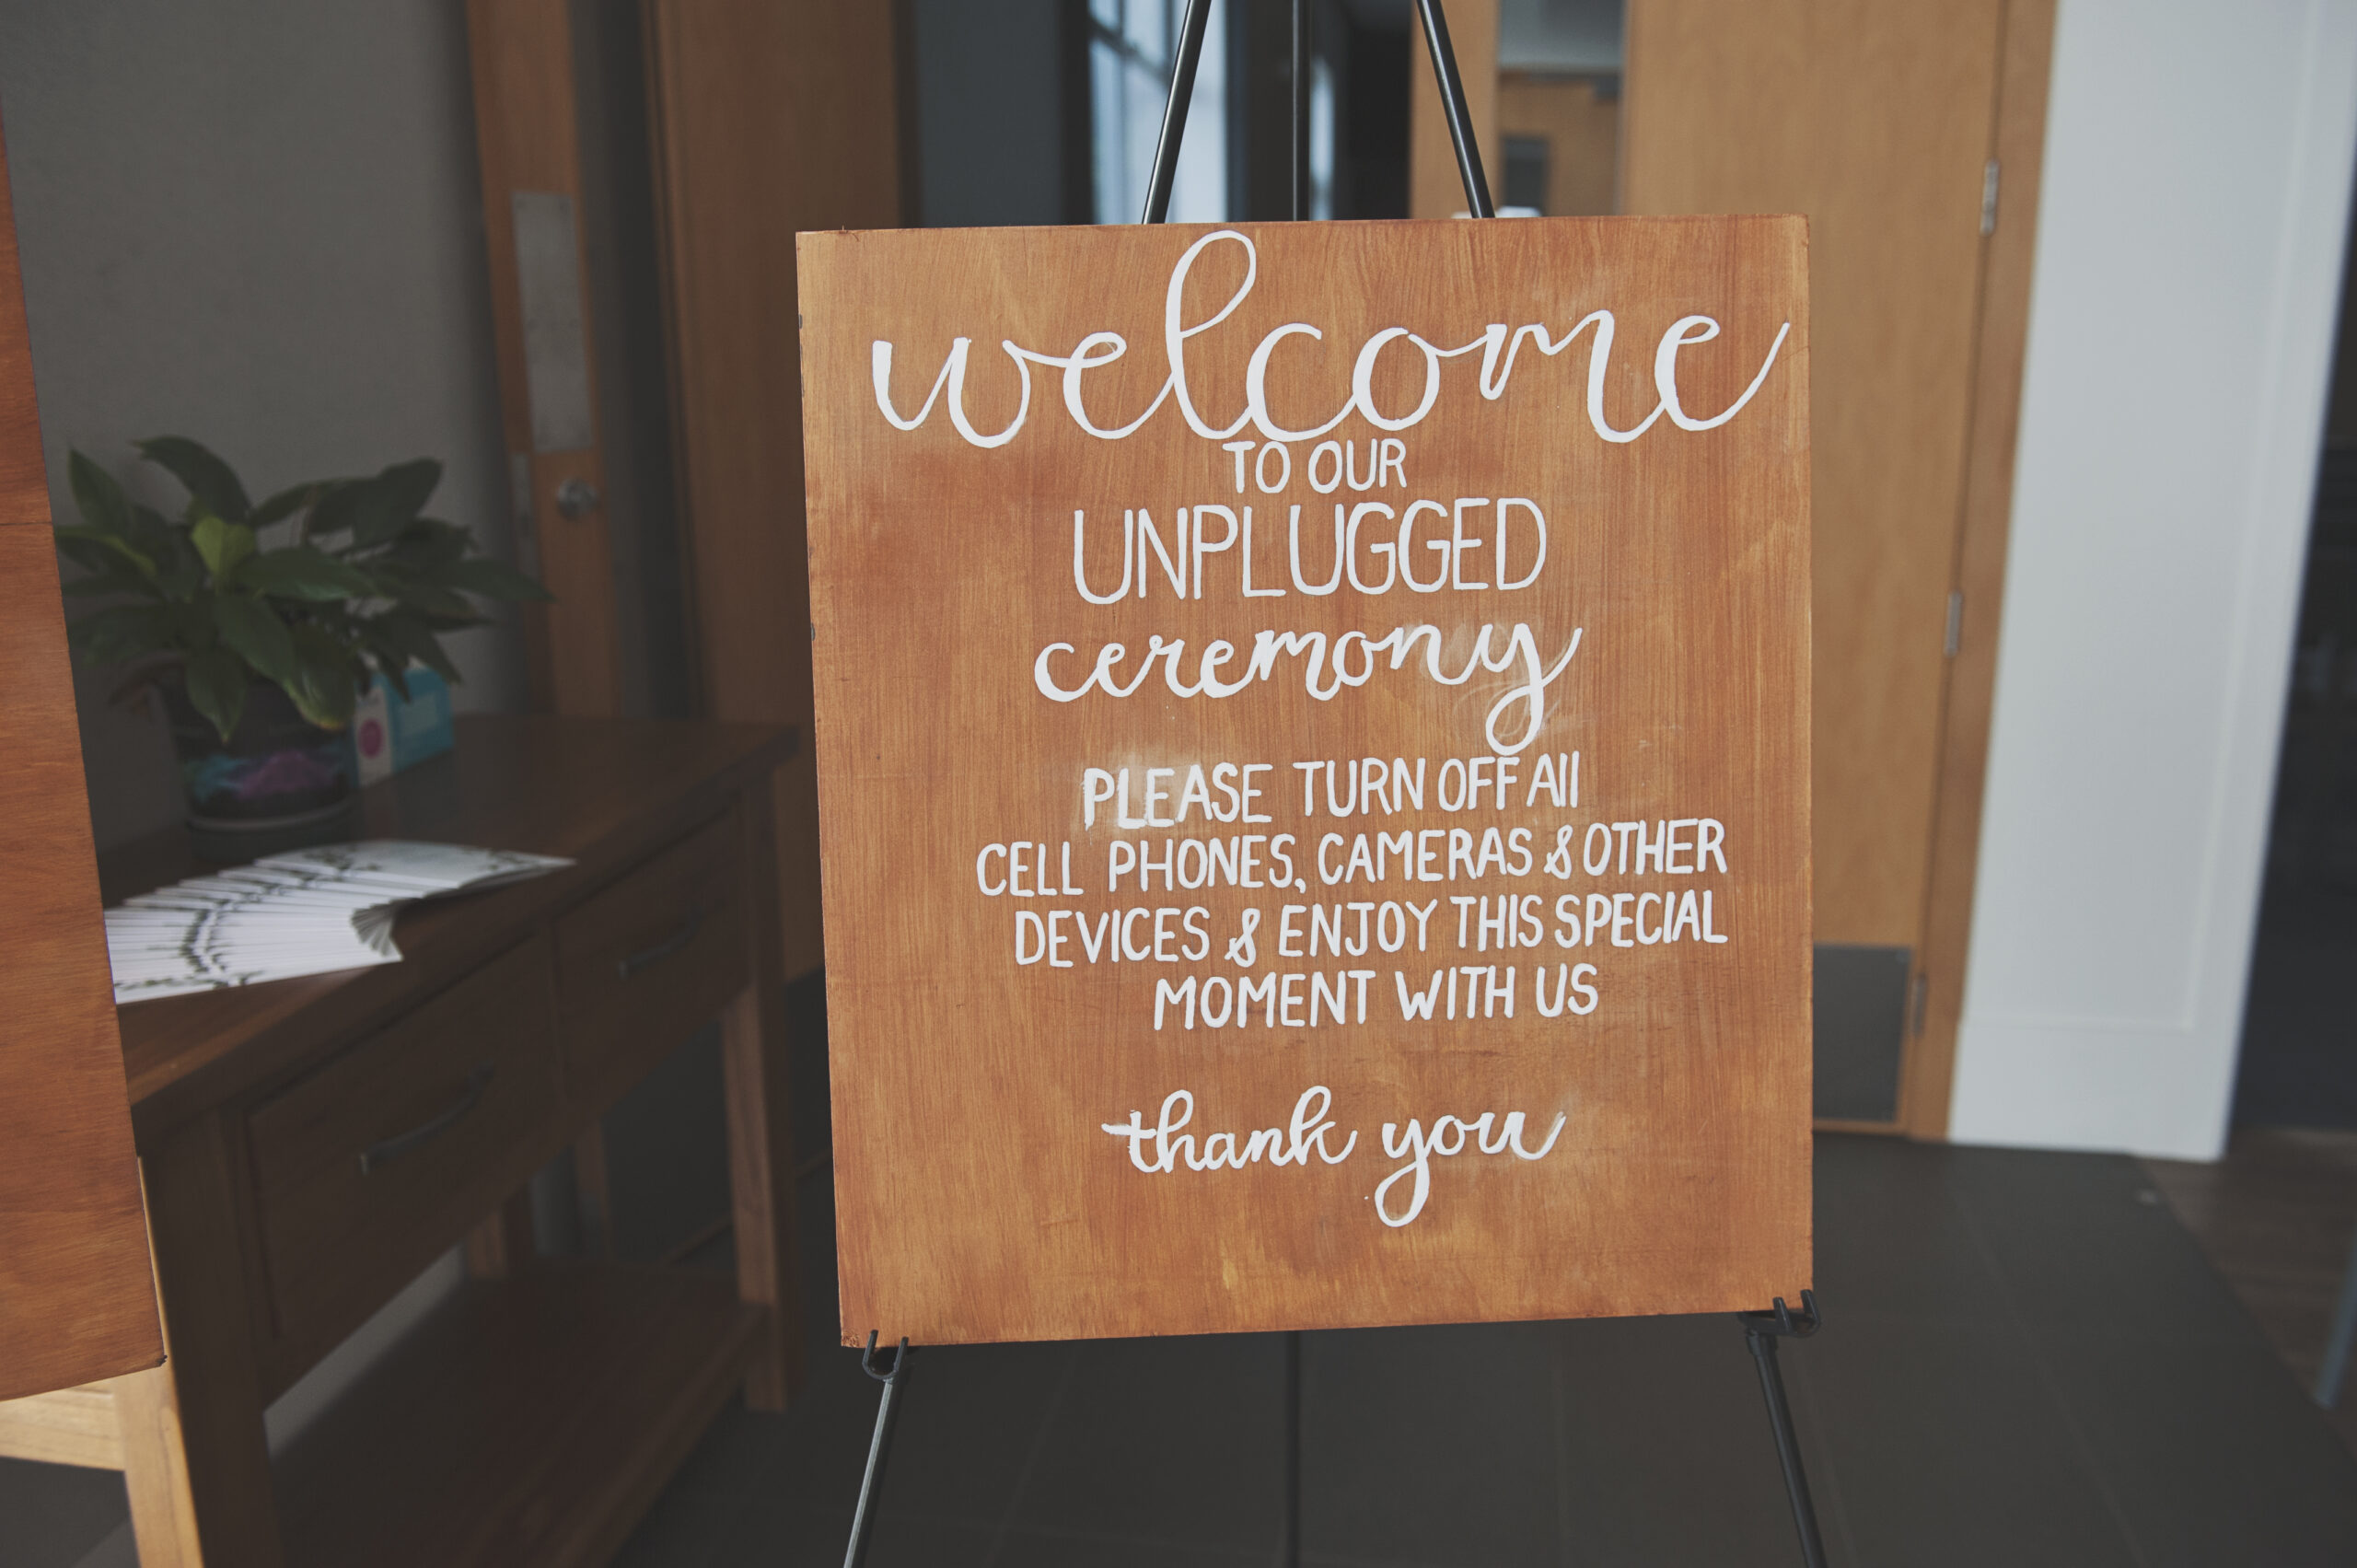 welcome
TO OUR
UNPLUGGED
ceremony
PLEASE TURN OFF All
CELL PHONES, CAMERAS & OTHER
DEVICES & ENJOY THIS SPECIAL
MOMENT WITH US
thank you